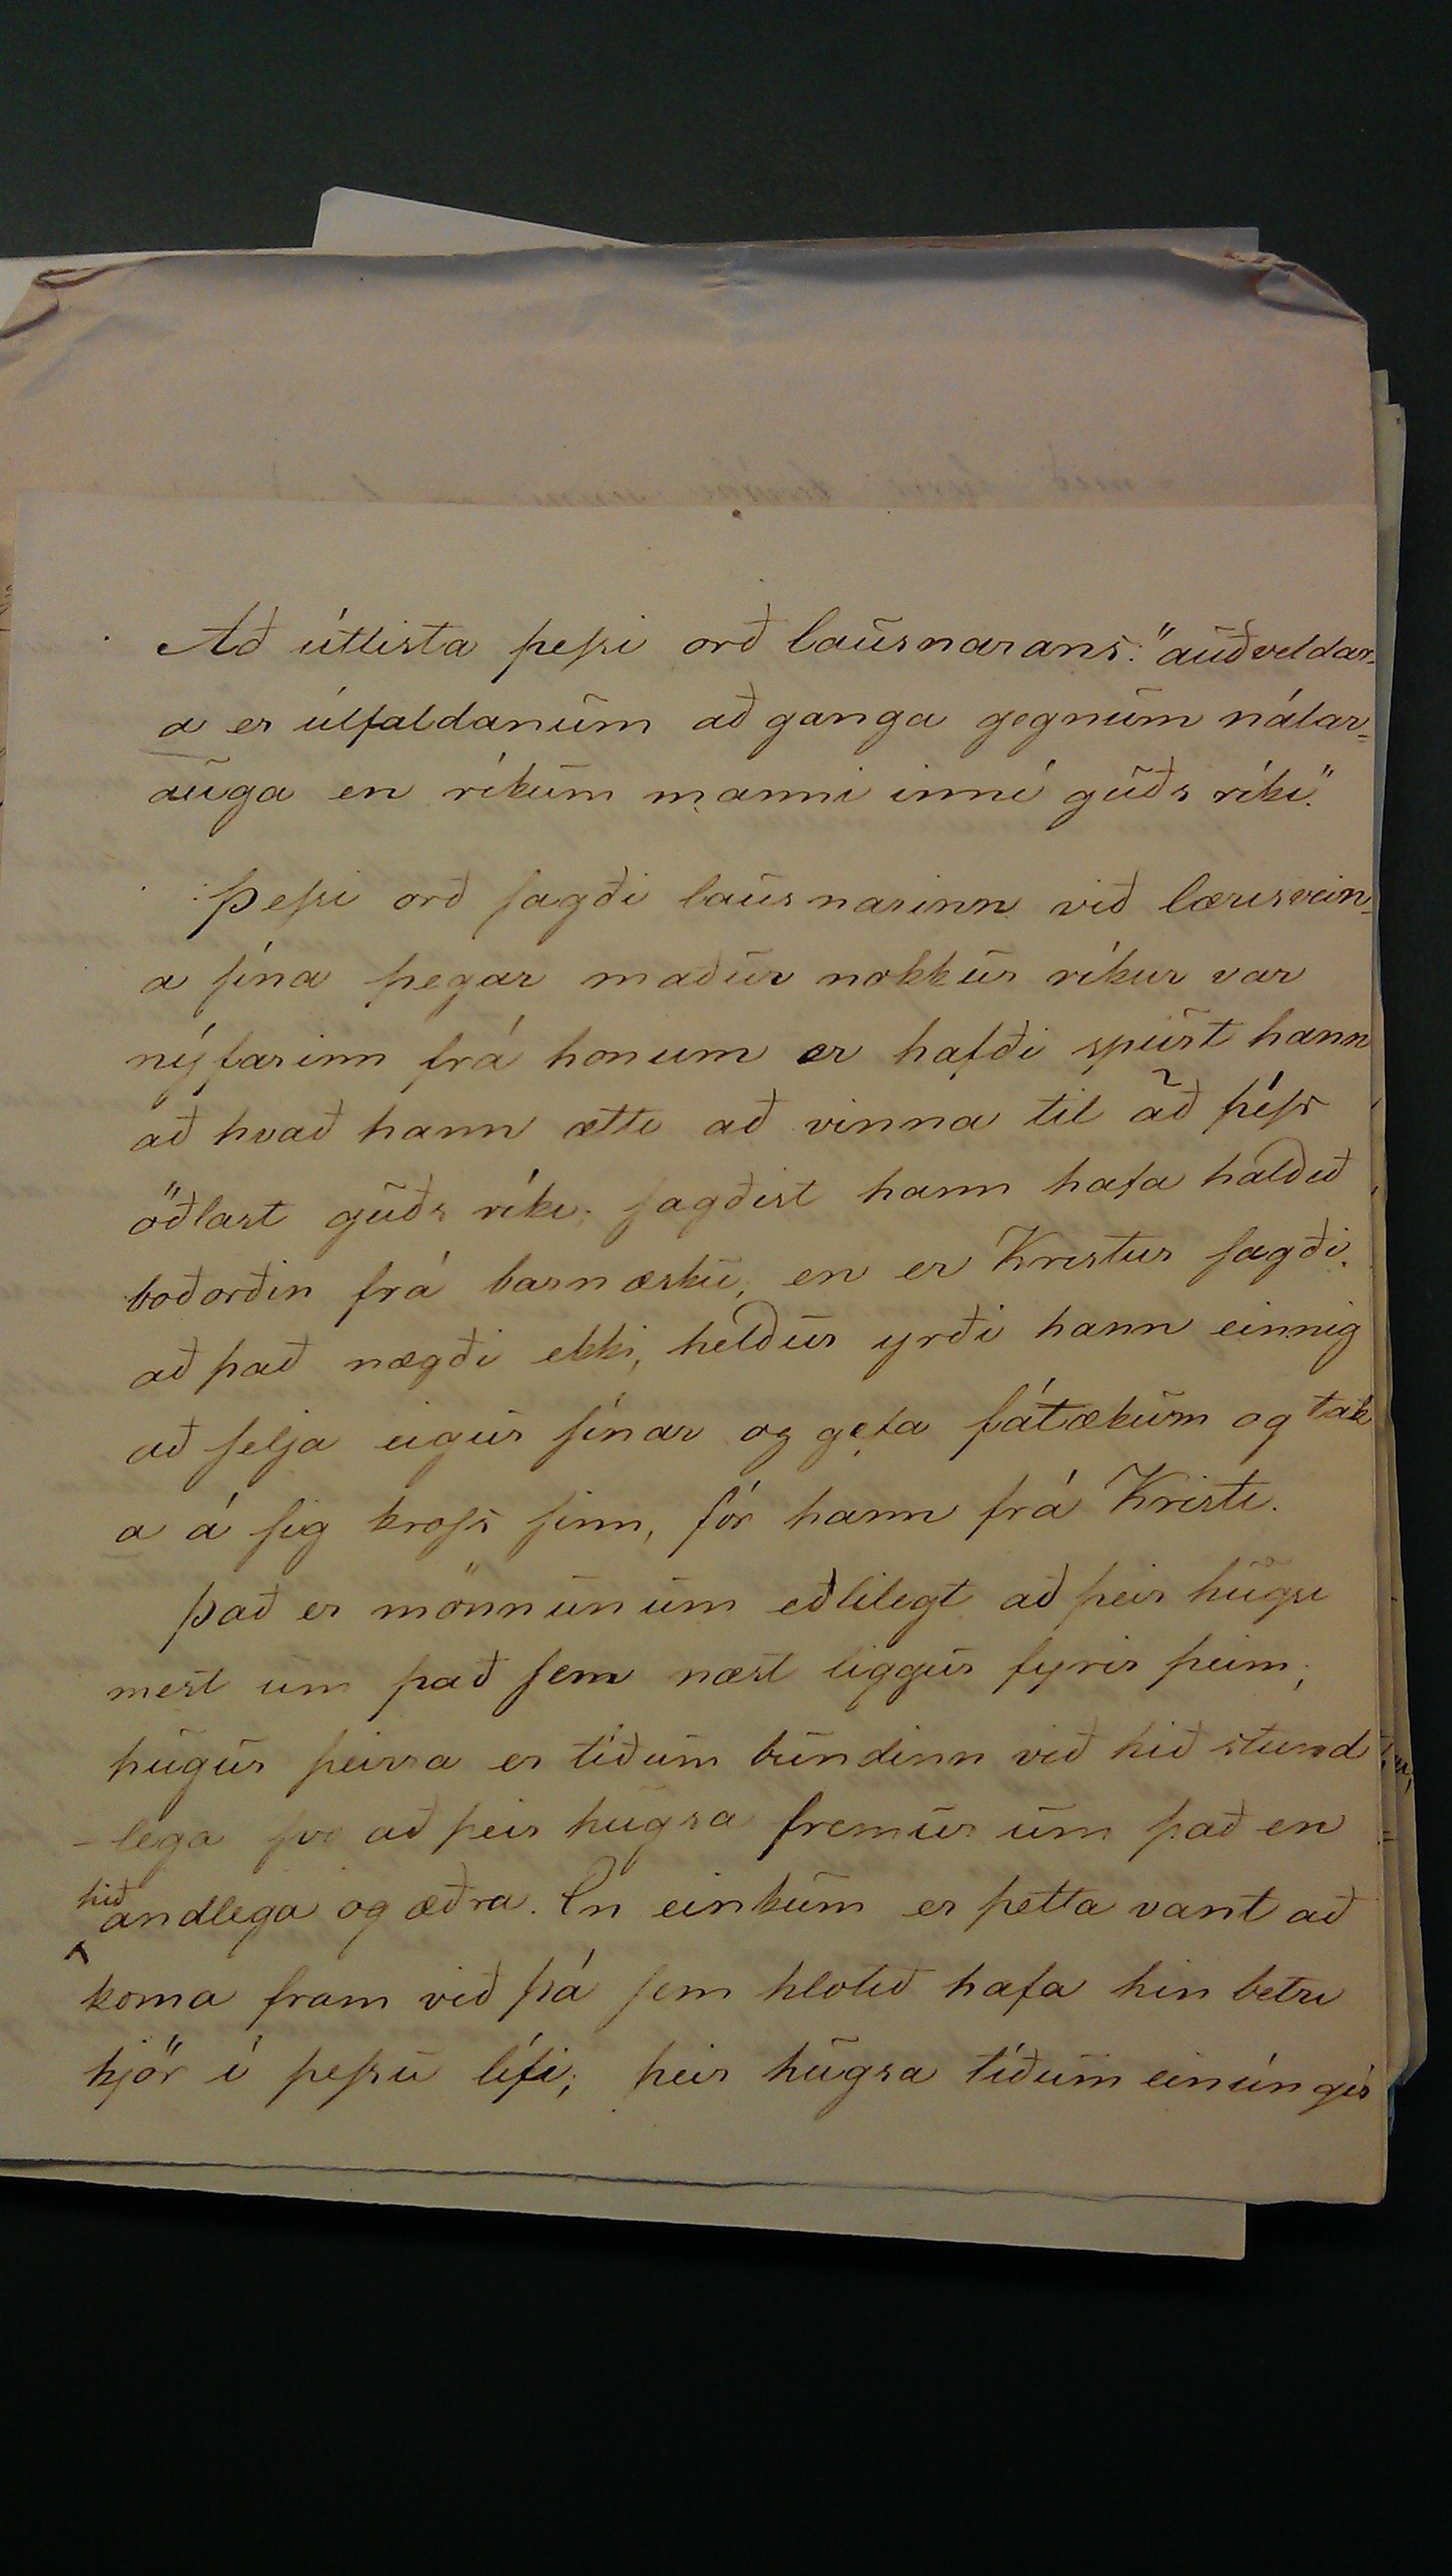 Að útlista þessi orð lausnarans: "auðveldar-
a er úlfaldanum að ganga gegnum nálar=
auga en ríkum manni inní guðs ríki."
Þessi orð sagði lausnarinn við lærisvein-
a sína þegar maður nokkur ríkur var
nýfarinn frá honum er hafði spurt hann
að hvað hann ætti að vinna til að
öðlast guðs ríki; sagðist hann hafa haldið
boðorðin frá barnæsku, en er Kristur sagði
að það nægði ekki, heldur yrði hann einnig
að selja eigur sínar og gefa fátækum og tak
a á sig kross sinn, fór hann frá Kristi.
Það er mönnunum eðlilegt að þeir hugsi
mest um það sem næst liggur fyrir þeim;
hugur þeirra er tíðum bundinn við hið stund
-lega svo að þeir hugsa fremur um það en
hið andlega og æðra. En einkum er þetta vant að
koma fram við þá sem hlotið hafa hin betri
kjör í þessu lífi; þeir hugsa tíðum einúngis